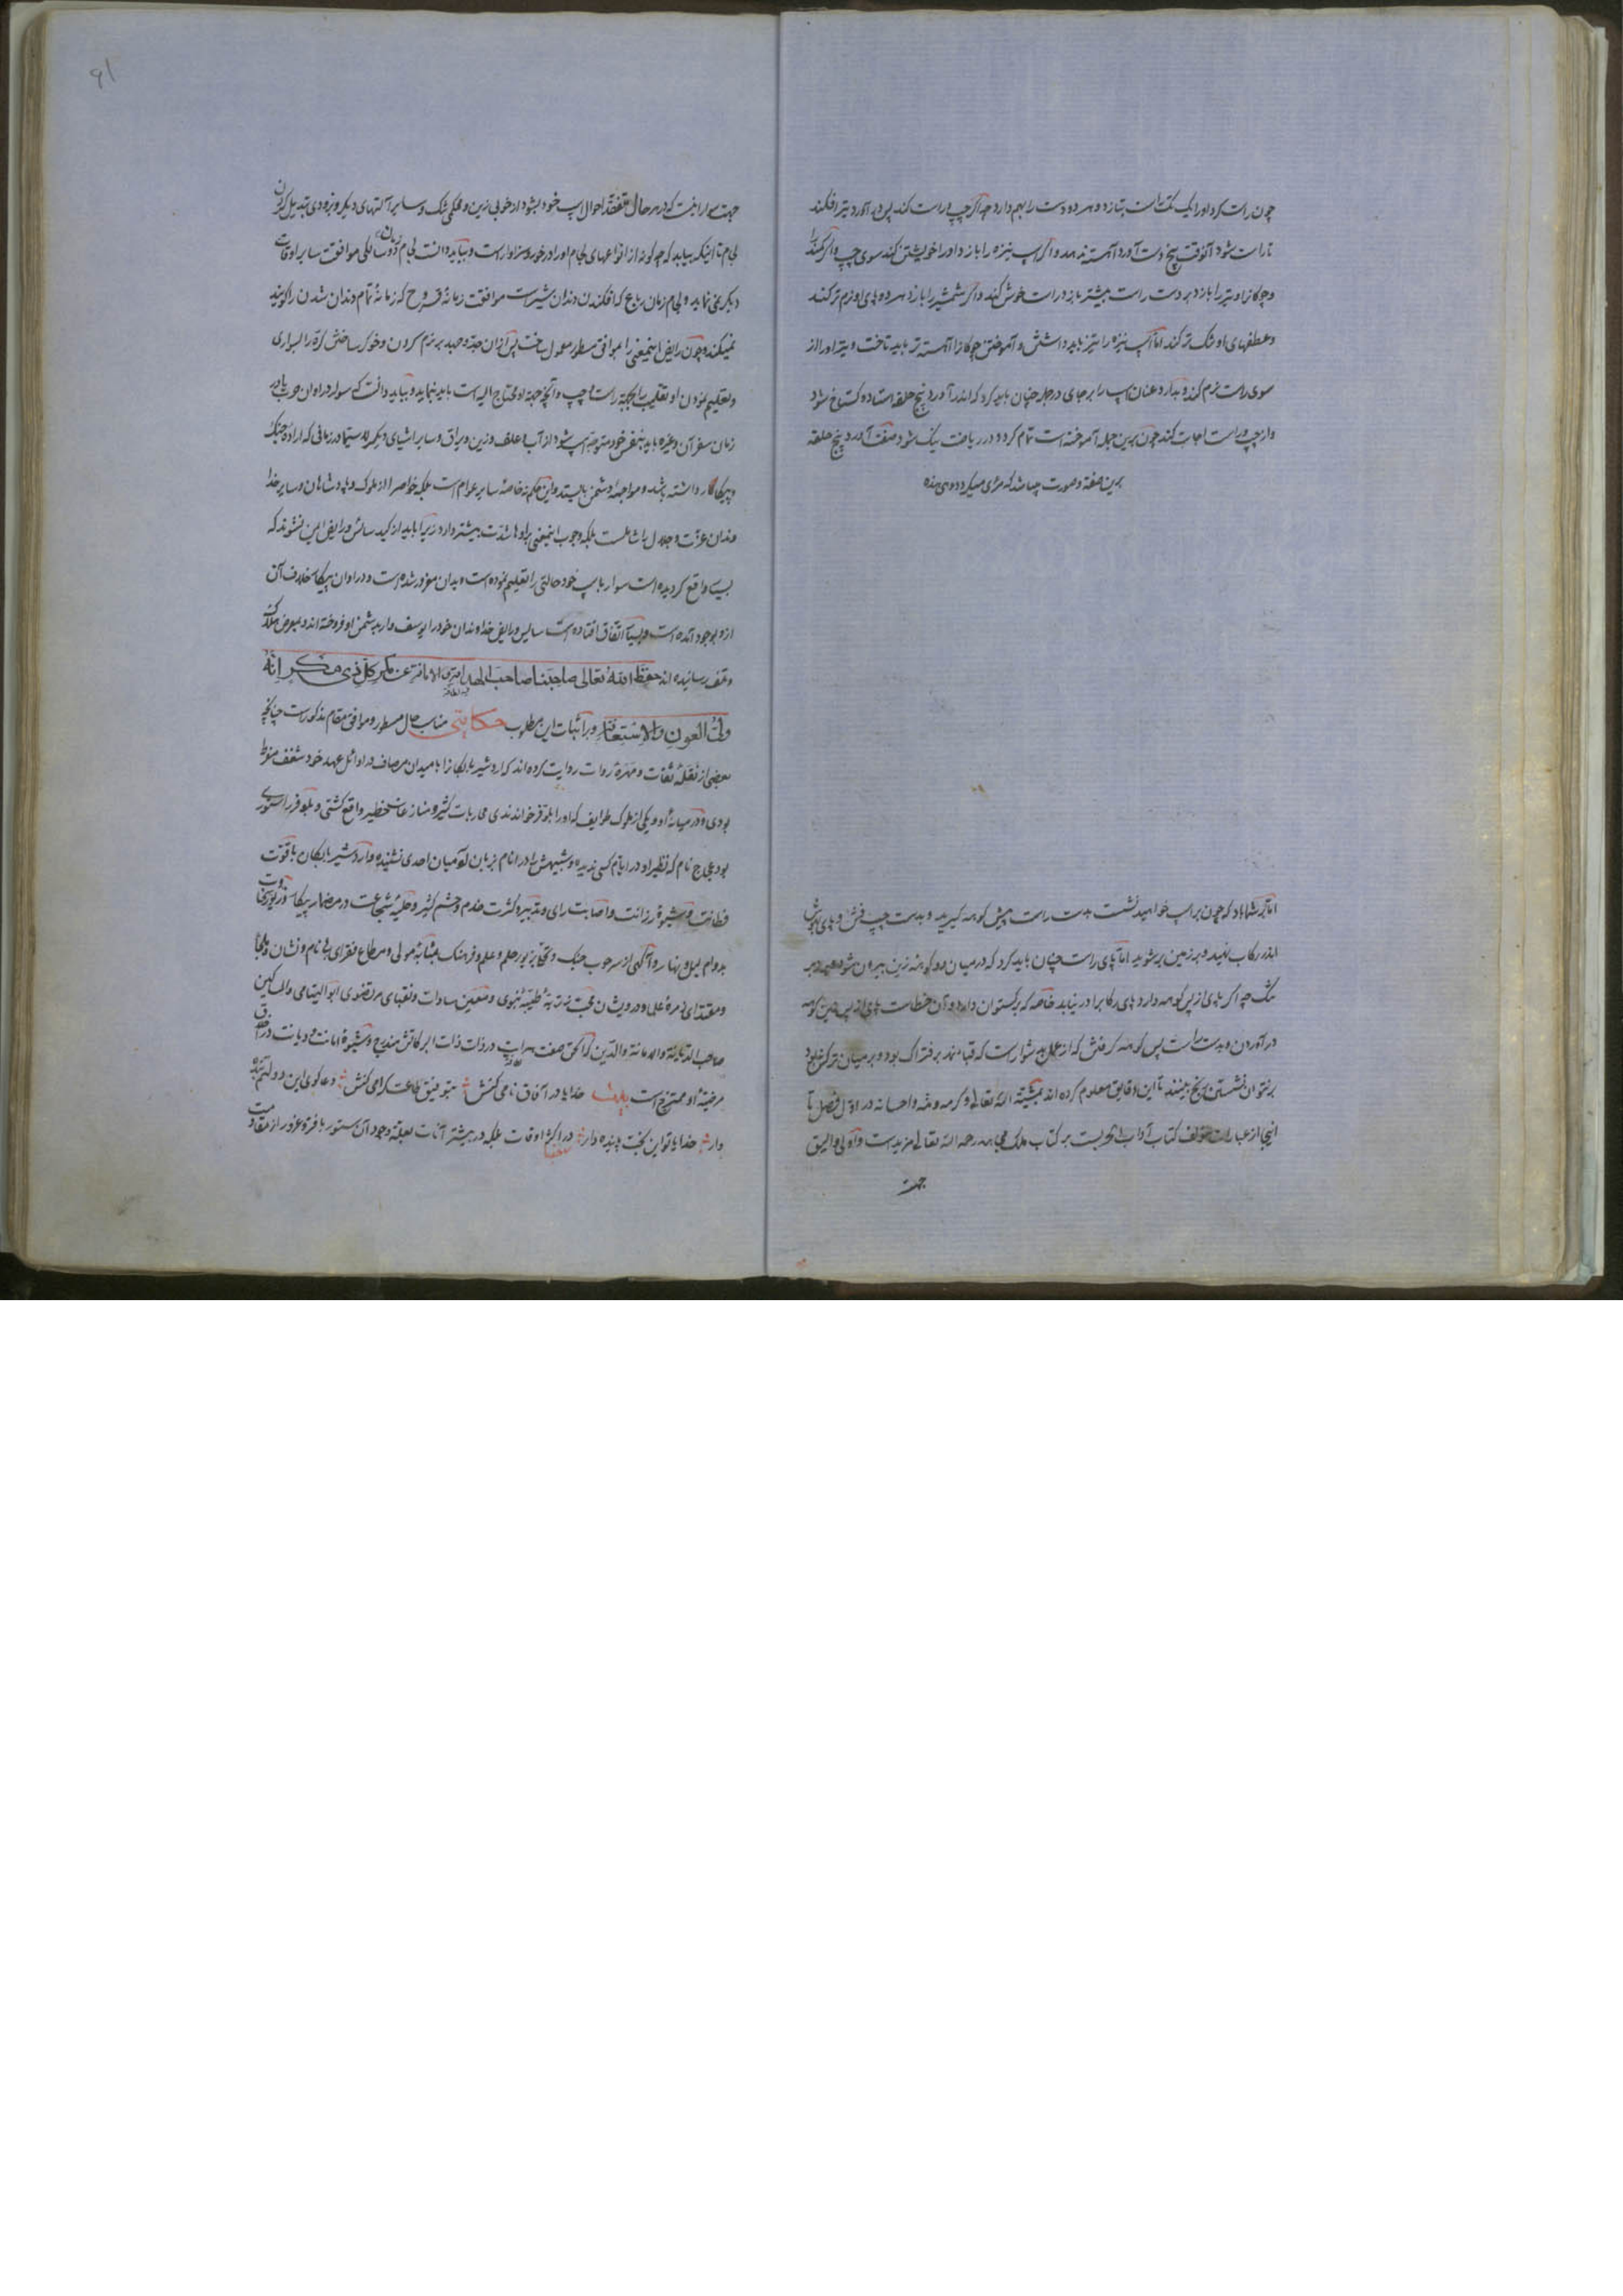 چون راست کرد اورا یک تک است بتازد و هر دو دست را بهم دارد چه اگر چپ و راست کند پس در آورد تیر افکند
تا راست شود آنوقت پنج دست آورد آهسته نهد و اگر اسپ نیزه را بازد اورا خویشتن کند سوی چپ و اگر کمند را
و چوکانرا و تیر را بازد بر دست راست بیشتر بازد و راست خوش کند و اگر شمشیر را بازد هر دو پای او نرم تر کند
و عطفهای او تنک تر کند اما اسپ نیزه را تیز باید داشتن و آموختن چوکانرا آهسته تر باید تاخت و تیر اورا از
سوی راست نرم کند و بدارد عنان اسپ را بر جای در جمله چنان باید کرد که اندر آورد پنج حلقه استاد و گستاخ شود
و از چپ و راست اجابت کند چون برین جمله آموخته است تمام کردد در ریاضت نیک شود صفت آورد پنج حلقه
برین صفة و صورت چنانند که مرئی میکردد و هی هذه
اما بر شما باد که چون بر اسپ خواهید نشست بدست راست پیش کوهه کیرید و بدست چپ فش و پای چپش
اندر رکاب نهید و بر زمین بر شوید اما پای راست چنان باید کرد که در میان دو کوهه زین بیرون شود
تنک چه اکر پای از پس کوهه دارد پای رکابرا در نیابد خاصه که برکستوان دارد و آن خطاست پای از پس زین کوهه
در آوردن و بدست راست پس کوهه کرفتن که از عمل بد سوارست که قبا مند بر فتراک بود و بر میان ترکش بود
بر نتوان نشستن رنج بینند تا این دقایق معلوم کرده اند بمشیئة الله تعالی و کرمه و منه و احسانه در اول فصل تا
اینجا از عبارات مؤلف کتاب آداب الحربست بر کتاب ملک مجاهد رحمه الله تعالی مزیدست و اولی و الیق
جهت
۹۱
جهت سوار انست که در هر حال متفقد احوال اسپ خود بشود از خوبی زین و محکمی تنک و سایر آلتهای دیکر و بزودی تبدیل کردن
لجام تا اینکه بیابد که چه کونه از انواعهای لجام اورا در خور و سزاوار است و بباید دانست لجام زمان دوسالکی موافقت سایر اوقات
دیکر نمی نماید و لجام زمان رباع که افکندن دندان شیرست موافقت زمانهٔ قروح که زمانهٔ تمام دندان شدن را کویند
نمیکند و چون رایض اینمعنی را موافق مسطور معمول ساخت پس از آن جد و جهد بر نرم کردن و خوکر ساختن کره را بسواری
و تعلیم نمودن او تقلیب را بجهة راست و چپ و آنچه جهة او محتاج الیه است باید بنماید و بباید دانست که سوار در اوان حرب یا در
زمان سفر آن و غیره باید بنفس خود متوجه اسپ شود از آب و علف و زین و یراق و سایر اشیای دیکر لا سیما در زمانی که ارادهٔ جنک
و پیکار داشته باشد و مواجههٔ دشمن بایستد و این حکم نه خاصهٔ سایر عوام است بلکه خواص را از ملوک و پادشاهان و سایر خدا
وندان عزت و جلال را شاملست بلکه وجوب اینمعنی برایشان اشدت بیشتر دارد زیرا باید از کید سائس و رایض ایمن نشوند که
بسیار واقع کردیده است سوار با اسپ خود حالتی را تعلیم نموده است و بدان مغرور شده است و در اوان پیکار خلاف آن
ازو بوجود آمده است و بسیار اتفاق افتاده است سایس و رایض خداوندان خود را یوسف وار بدشمن او فروخته اند و بمعرض هلاک
و تلف رسانیده اند حفظ الله تعالی صاحبنا صاحب العهد عن مکر کل ذی مکر انه
ولی العون و الاستعانة و بر اثبات این مطلوب حکایتی مناسب حال مسطور و موافق مقام مذکورست چنانچه
بعضی از نقلهٔ ثقات و مهرهٔ روات روایت کرده اند که اردشیر بابکانرا با میدان مصاف در اوائل عهد خود شغف مفرط
بودی و در میانهٔ او و یکی از ملوک طوایف که اورا بلوقر خواندندی محاربات کثیر و منازعات خطیر واقع کشتی و بلوقر را ستوری
بود عجاج نام که نظیر او در ایام کسی ندیده و شبیهش را در انام بزبان آدمیان احدی نشنیده و اردشیر بابکان با قوت
فطانت و شیوهٔ رزانت و اصابت رای و تدبیر و کثرت خدم و حشم کثیر و حلیهٔ شجاعت در مضمار پیکار و زیور سخا
بدوام لیل و نهار و آکهی از سر حوب جنک و تحلی بزیور حلم و علم و فرهنک بمثابهٔ مولی و مطاع فقرای بی نام و نشان و ملجا
و مقتدای زمرهٔ علما و درویشان محب عترتهٔ طیبهٔ نبوی و معین سادات و نقبای مرتضوی ابو الیتامی والمساکین
صاحب الدیانة و الامانة و الدین که الحق صفت در ذات ذات البرکاتش مندرج و شیوهٔ امانت و دیانت در اخلاق
مرضیهٔ او ممتزج است بیت خدایا در آفاق نامی کنش بتوفیق طاعت کرامی کنش دعا کوی این دولتم بنده
وار خدایا تو این بخت پاینده دار در اکثر اوقات بلکه در بیشتر آنات بعلة وجود آن ستور با فره و غرور از مقاومت